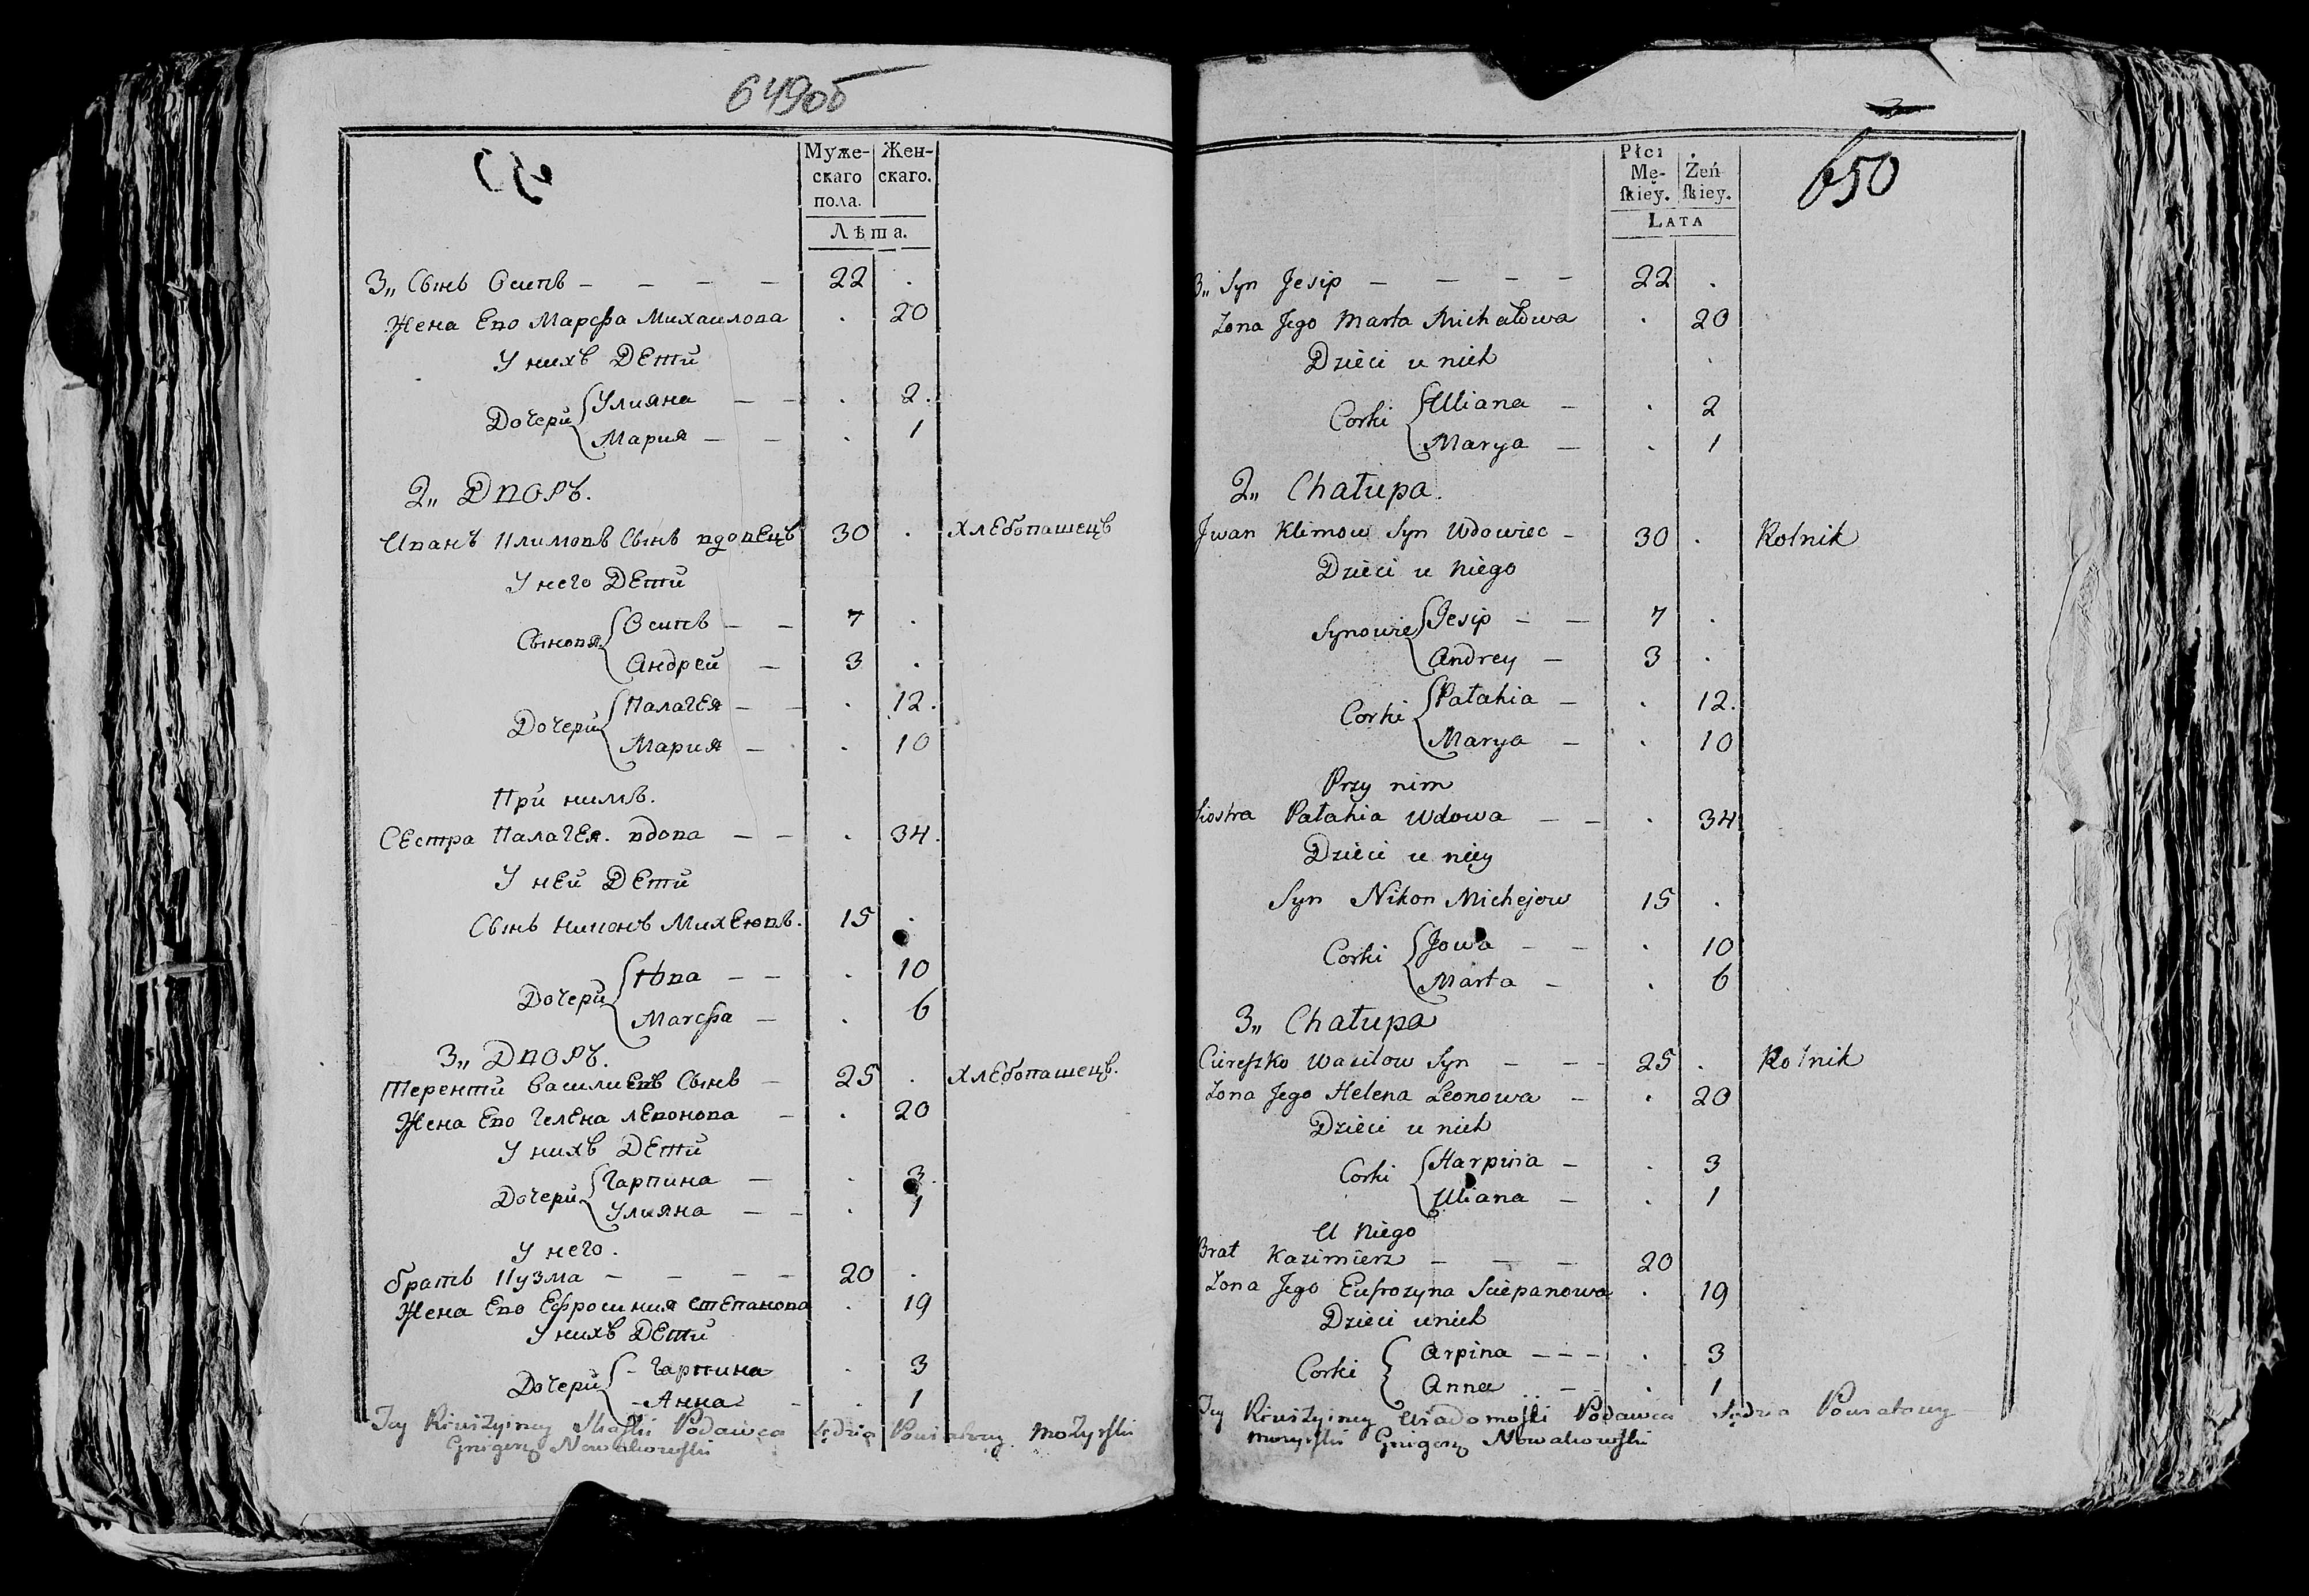 649об
Муже-
скаго
пола.
Жен-
скаго.
Лѣта.
3„ Сынъ Осипъ – – – – 22 .
Жена Его Марѳа Михаилова . 20
У нихъ Дети
Дочери Улияна – – . 2.
Мария – – . 1
2„ Дворъ.
Иванъ Климовъ Сынъ вдовецъ 30 . хлебопашецъ
У него Дети
Сыновя Осипъ – – 7 .
Андрей – 3 .
Дочери Палагея – – . 12.
Мария – . 10
При нимъ.
Сестра Палагея. вдова – – . 34.
У ней Дети
Сынъ Никонъ Михеювъ. 15 .
Дочери Юва – – . 10
Марѳа – . 6
3„ Дворъ.
Терентий Василиевъ Сынъ – 25 . хлебопашецъ.
Жена Его Гелена левонова – . 20
У нихъ Дети
Дочери Гарпина – . 3
Улияна – – . 1
У него.
братъ Кузма – – – – 20 .
Жена Его Ефросиния степанова . 19
У нихъ Дети
Дочери – Гарпина . 3
– Анна – . 1
Tey Rewizyiney Skaski Podawca Sędzia Powiatowy Mozyrski
Grzigorz Nowakowski
650
Płci
Mę-
ſkiey.
Żeń
ſkiey.
LATA
3„ Syn Jesip – – – – 22 .
Zona Jego Marta Michałowa . 20
Dzieci u nich
Corki Uliana – . 2
Marya – . 1
2„ Chałupa.
Jwan Klimow Syn Wdowiec – 30 . Rolnik
Dzieci u niego
Synowie Jesip – – 7 .
Andrey – 3 .
Corki Pałahia – . 12.
Marya – . 10
Przy nim
Siostra Pałahia Wdowa – – . 34
Dzieci u niey
Syn Nikon Michejow 15 .
Corki Jowa – – . 10
Marta – . 6
3„ Chałupa
Cireszko Wasilow Syn – – – 25 . Rolnik
Zona Jego Helena Leonowa – . 20
Dzieci u nich
Corki Harpina – . 3
Uliana – . 1
U niego
Brat Kazimierz – – – 20
Zona Jego Eufrozyna Sciepanowa . 19
Dzieci u nich
Corki Arpina – – – . 3
Anna – – . 1
Tey Rewizyiney Wiadomości Podawca Sędzia Powiatowy
Mozyrski Grzigorz Nowakowski